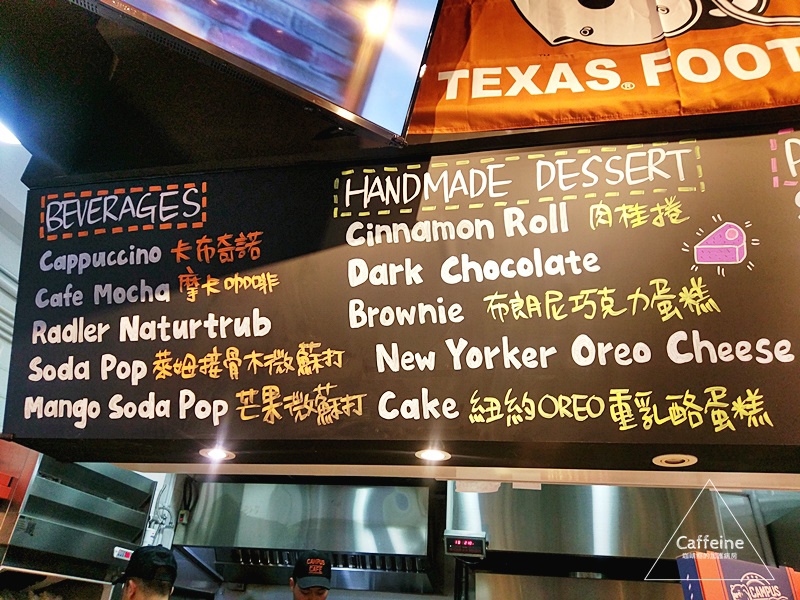 TEXAS® FOOT
BEVERAGES
Cappuccino 卡布奇諾
Cafe Mocha 摩卡咖啡
Radler Naturtrub
Soda Pop 萊姆接骨木微蘇打
Mango Soda Pop 芒果微蘇打
HANDMADE DESSERT
Cinnamon Roll 肉桂捲
Dark Chocolate
Brownie 布朗尼巧克力蛋糕
New Yorker Oreo Cheese
Cake 紐約OREO重乳酪蛋糕
P
CAMPUS
CAFE
Caffeine
CAMPUS